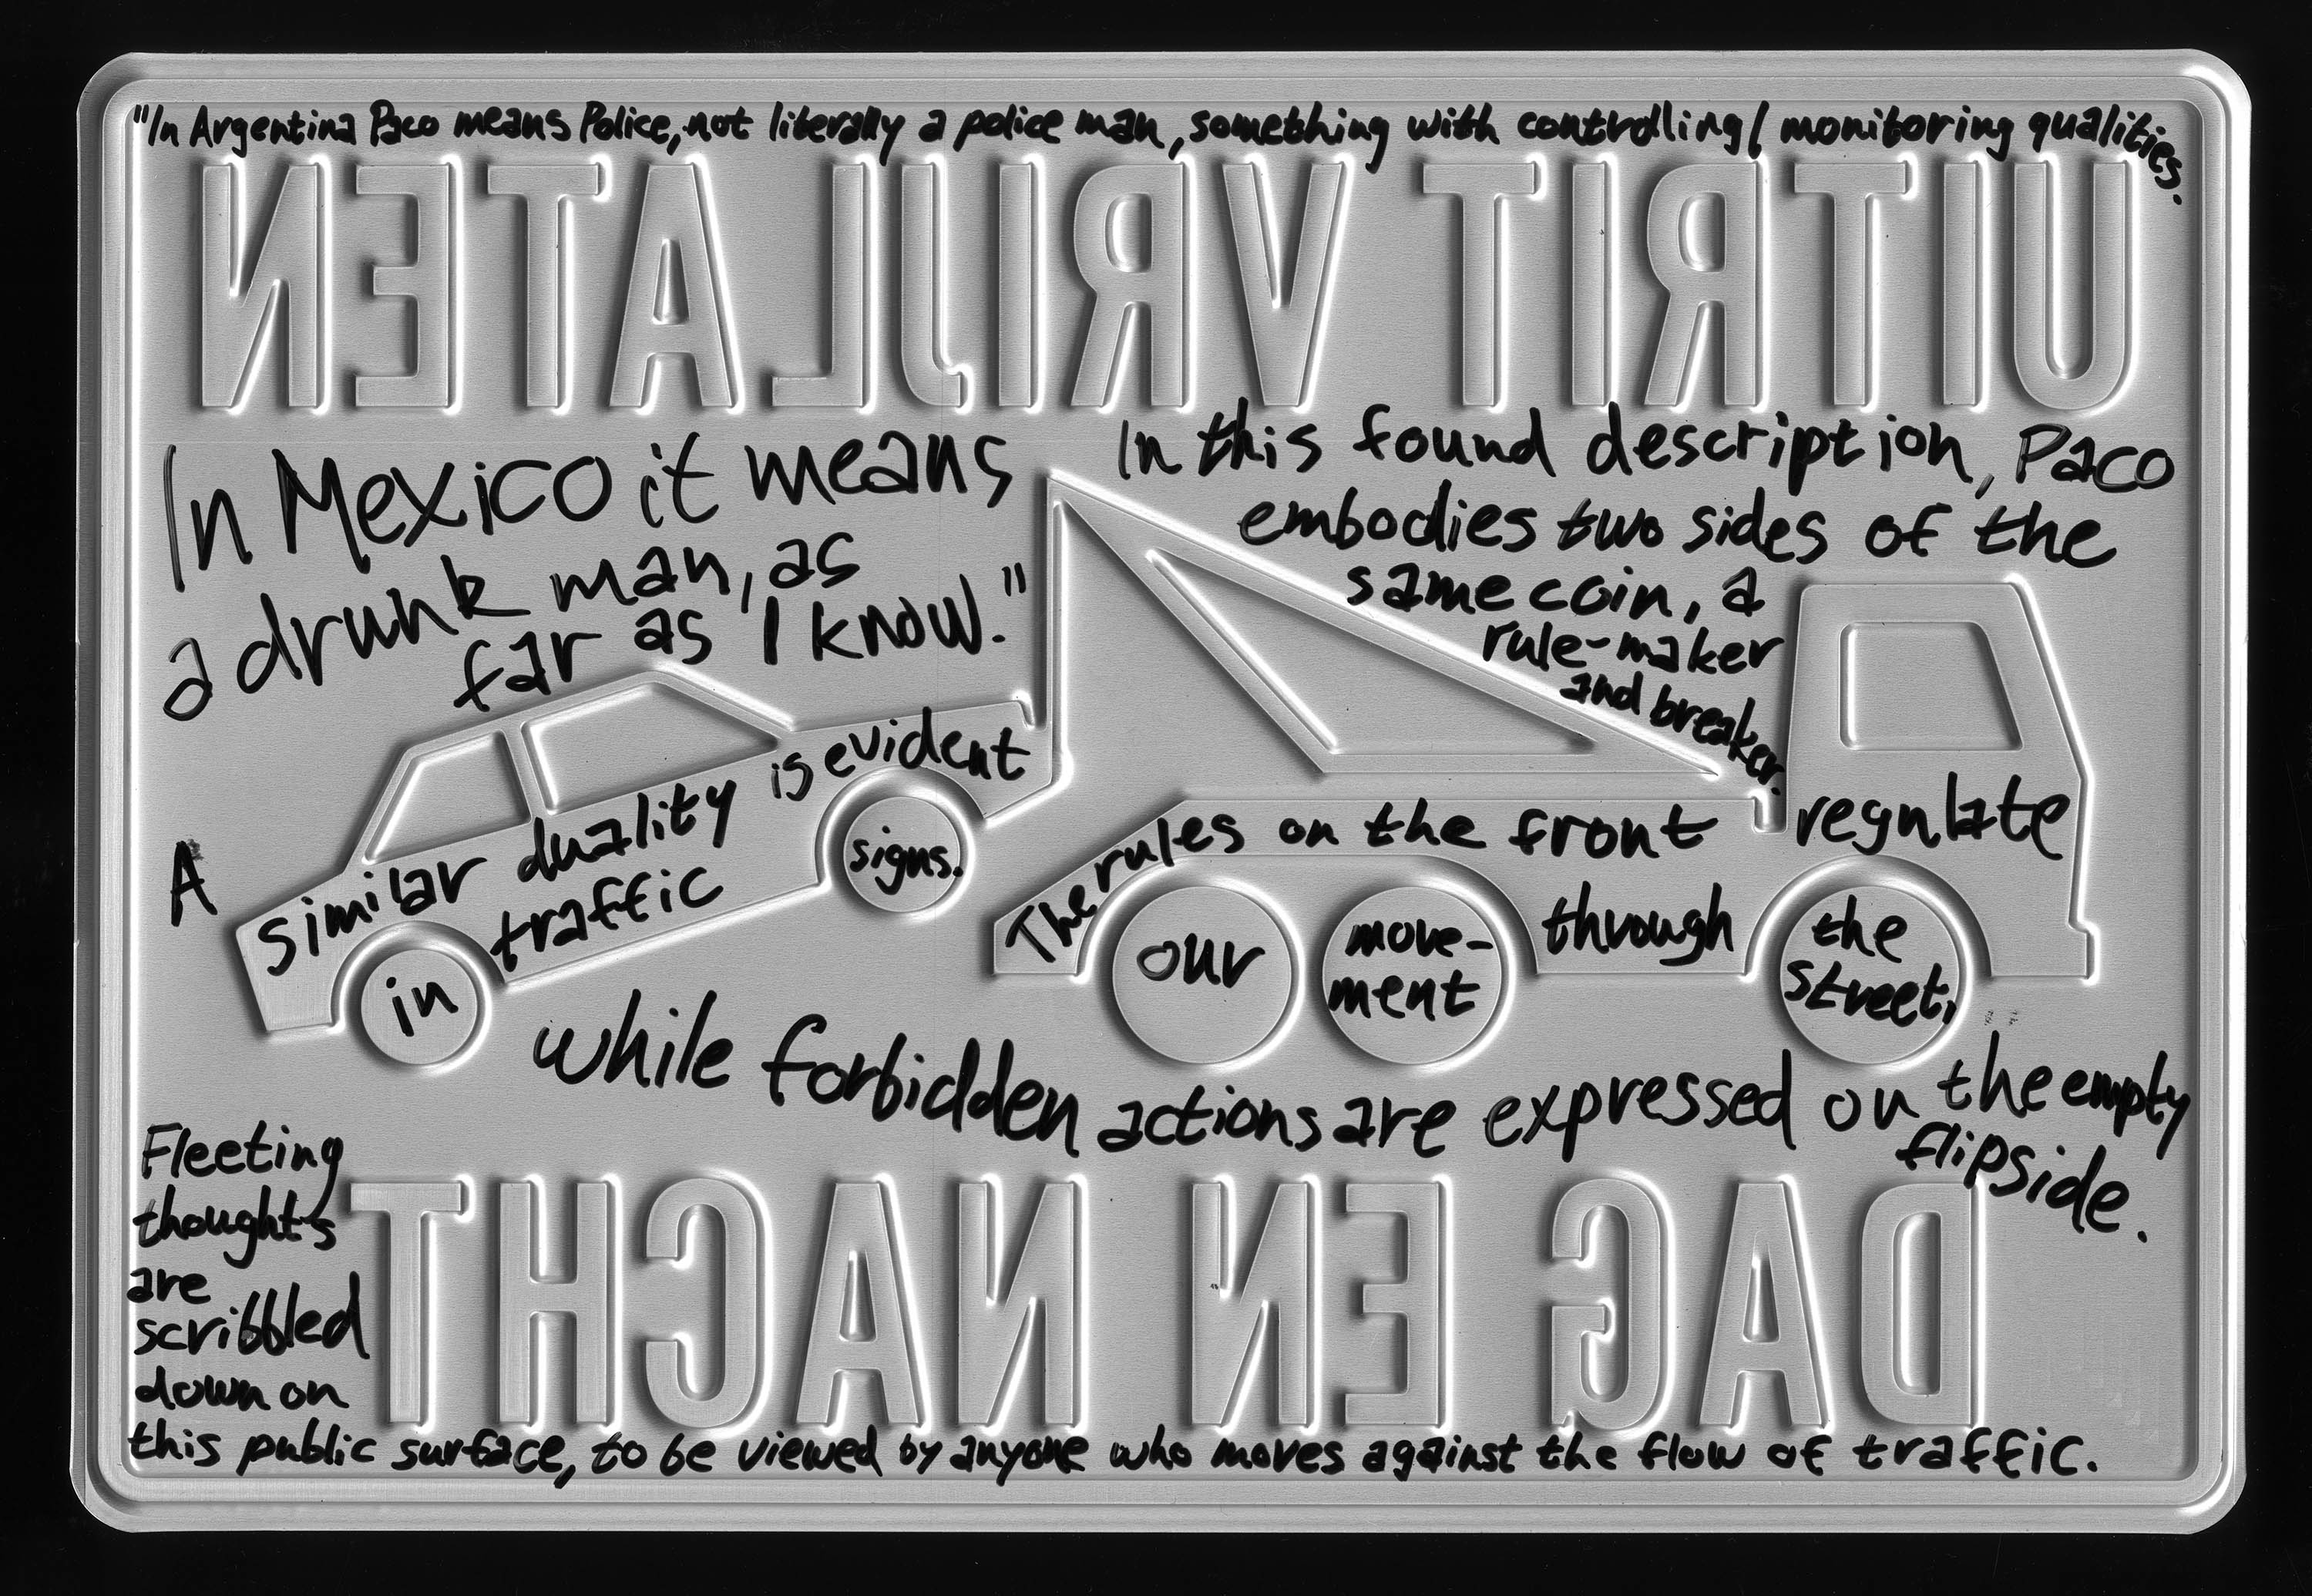 "In Argentina Paco means Police, not literally a police man, something with controlling/monitoring qualities.
UITRIT VRIJLATEN
In Mexico it means
a drunk man, as
far as I know."
In this found description, Paco
embodies two sides of the
same coin, a
rule-maker
and breaker.
A
similar duality is evident
in traffic signs.
The rules on the front regulate
our move-
ment through the
street,
while forbidden actions are expressed on the empty
flipside.
Fleeting
thoughts
are
scribbled
down on
DAG EN NACHT
this public surface, to be viewed by anyone who moves against the flow of traffic.